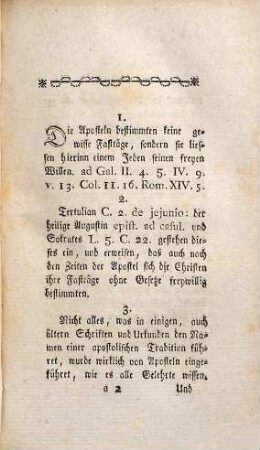 1.
Die Aposteln bestimmten keine ge-
wisse Fasttäge, sondern sie lies-
sen hierinn einem Jeden seinen freyen
Willen. ad Gal. II. 4. 5. IV. 9.
v. 13. Col. 11. 16. Rom. XIV. 5.
2.
Tertulian C. 2. de jejunio: der
heilige Augustin epist. ad casul. und
Sokrates L. 5. C. 22. gestehen die-
ses ein, und erweisen, das auch noch
nach den Zeiten der Apostel sich die Christen
ihre Fasttäge ohne Gesetze freywillig
bestimmten.
3.
Nicht alles, was in einigen, auch
ältern Schriften und Urkunden den Na-
men einer apostolischen Tradition füh-
ret, wurde wirklich von Aposteln einge-
führet, wie es alle Gelehrte wissen.
a 2 Und